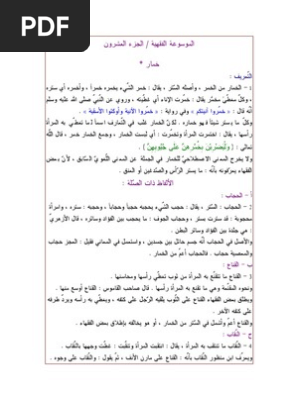 PDF
الموسوعة الفقهية / الجزء العشرون
خمار *
التّعريف :
1 - الخمار من الخمر ، وأصله السّتر ، يقال : خمر الشّيء يخمره خمراً ، وأخمره أي ستره
، وكلّ مغطّى مخمّر يقال : خمّرت الإناء أي غطّيته ، وروي عن النّبيّ صلى الله عليه وسلم
أنّه قال : « خمّروا آنيتكم » وفي رواية : « خمّروا الآنية وأوكئوا الأسقية » .
وكلّ ما يستر شيئاً فهو خماره . لكنّ الخمار غلب في التّعارف اسماً لما تغطّي به المرأة
رأسها ، يقال : اختمرت المرأة وتخمّرت : أي لبست الخمار ، وجمع الخمار خمر ، قال اللّه
تعالى : { وَلْيَضْرِبْنَ بِخُمُرِهِنَّ عَلَى جُيُوبِهِنَّ } .
ولا يخرج المعنى الاصطلاحيّ للخمار في الجملة عن المعنى اللّغويّ السّابق ، لأنّ بعض
الفقهاء يعرّفونه بأنّه : ما يستر الرّأس والصّدغين أو العنق .
الألفاظ ذات الصّلة :
أ - الحجاب :
2 - الحجاب : السّتر ، يقال : حجب الشّيء يحجبه حجباً وحجاباً ، وحجبه : ستره ، وامرأة
محجوبة : قد سترت بستر ، وحجاب الجوف : ما يحجب بين الفؤاد وسائره ، قال الأزهريّ
: هي جلدة بين الفؤاد وسائر البطن .
والأصل في الحجاب أنّه جسم حائل بين جسدين ، واستعمل في المعاني فقيل : العجز حجاب
والمعصية حجاب . فالحجاب أعمّ من الخمار .
ب - القناع :
3 - القناع ما تتقنّع به المرأة من ثوب تغطّي رأسها ومحاسنها .
ونحوه المقنعة وهي ما تقنع به المرأة رأسها . قال صاحب القاموس : القناع أوسع منها .
ويطلق بعض الفقهاء القناع على الثّوب يلقيه الرّجل على كتفه ، ويغطّي به رأسه ويردّ طرفه
على كتفه الآخر .
والقناع أعمّ وأشمل في السّتر من الخمار ، أو هو يخالفه بإطلاق بعض الفقهاء .
ج - النّقاب :
4 - النّقاب ما تنتقب به المرأة ، يقال : انتقبت المرأة وتنقّبت : غطّت وجهها بالنّقاب .
ويعرّف ابن منظور النّقاب بأنّه : القناع على مارن الأنف ، ثمّ يقول : والنّقاب على وجوه .